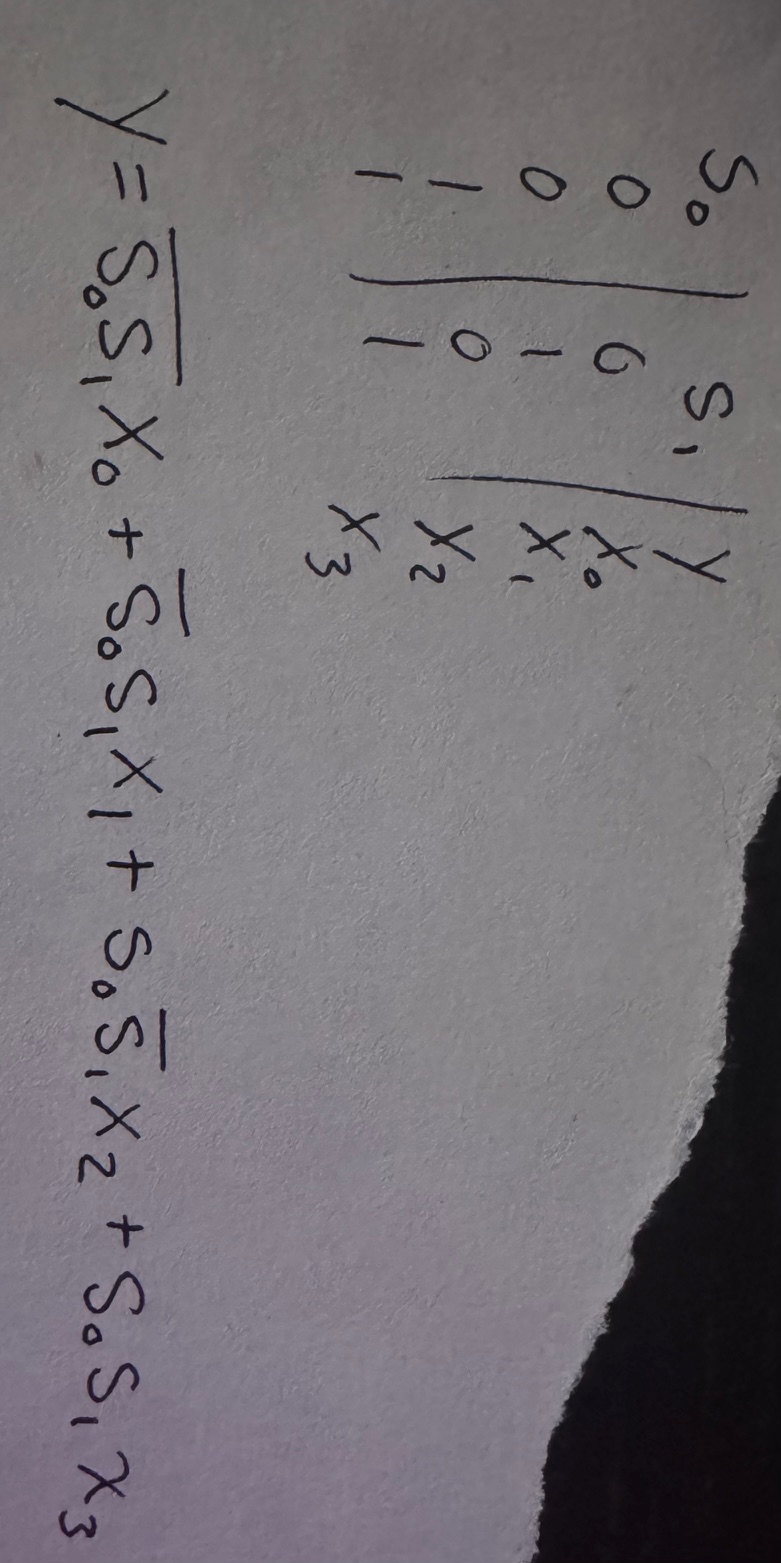 S₀ | S₁ | y
0 | 0 | x₀
0 | 1 | x₁
1 | 0 | x₂
1 | 1 | x₃
y = \overline{S₀S₁}x₀ + \overline{S₀}S₁x₁ + S₀\overline{S₁}x₂ + S₀S₁x₃